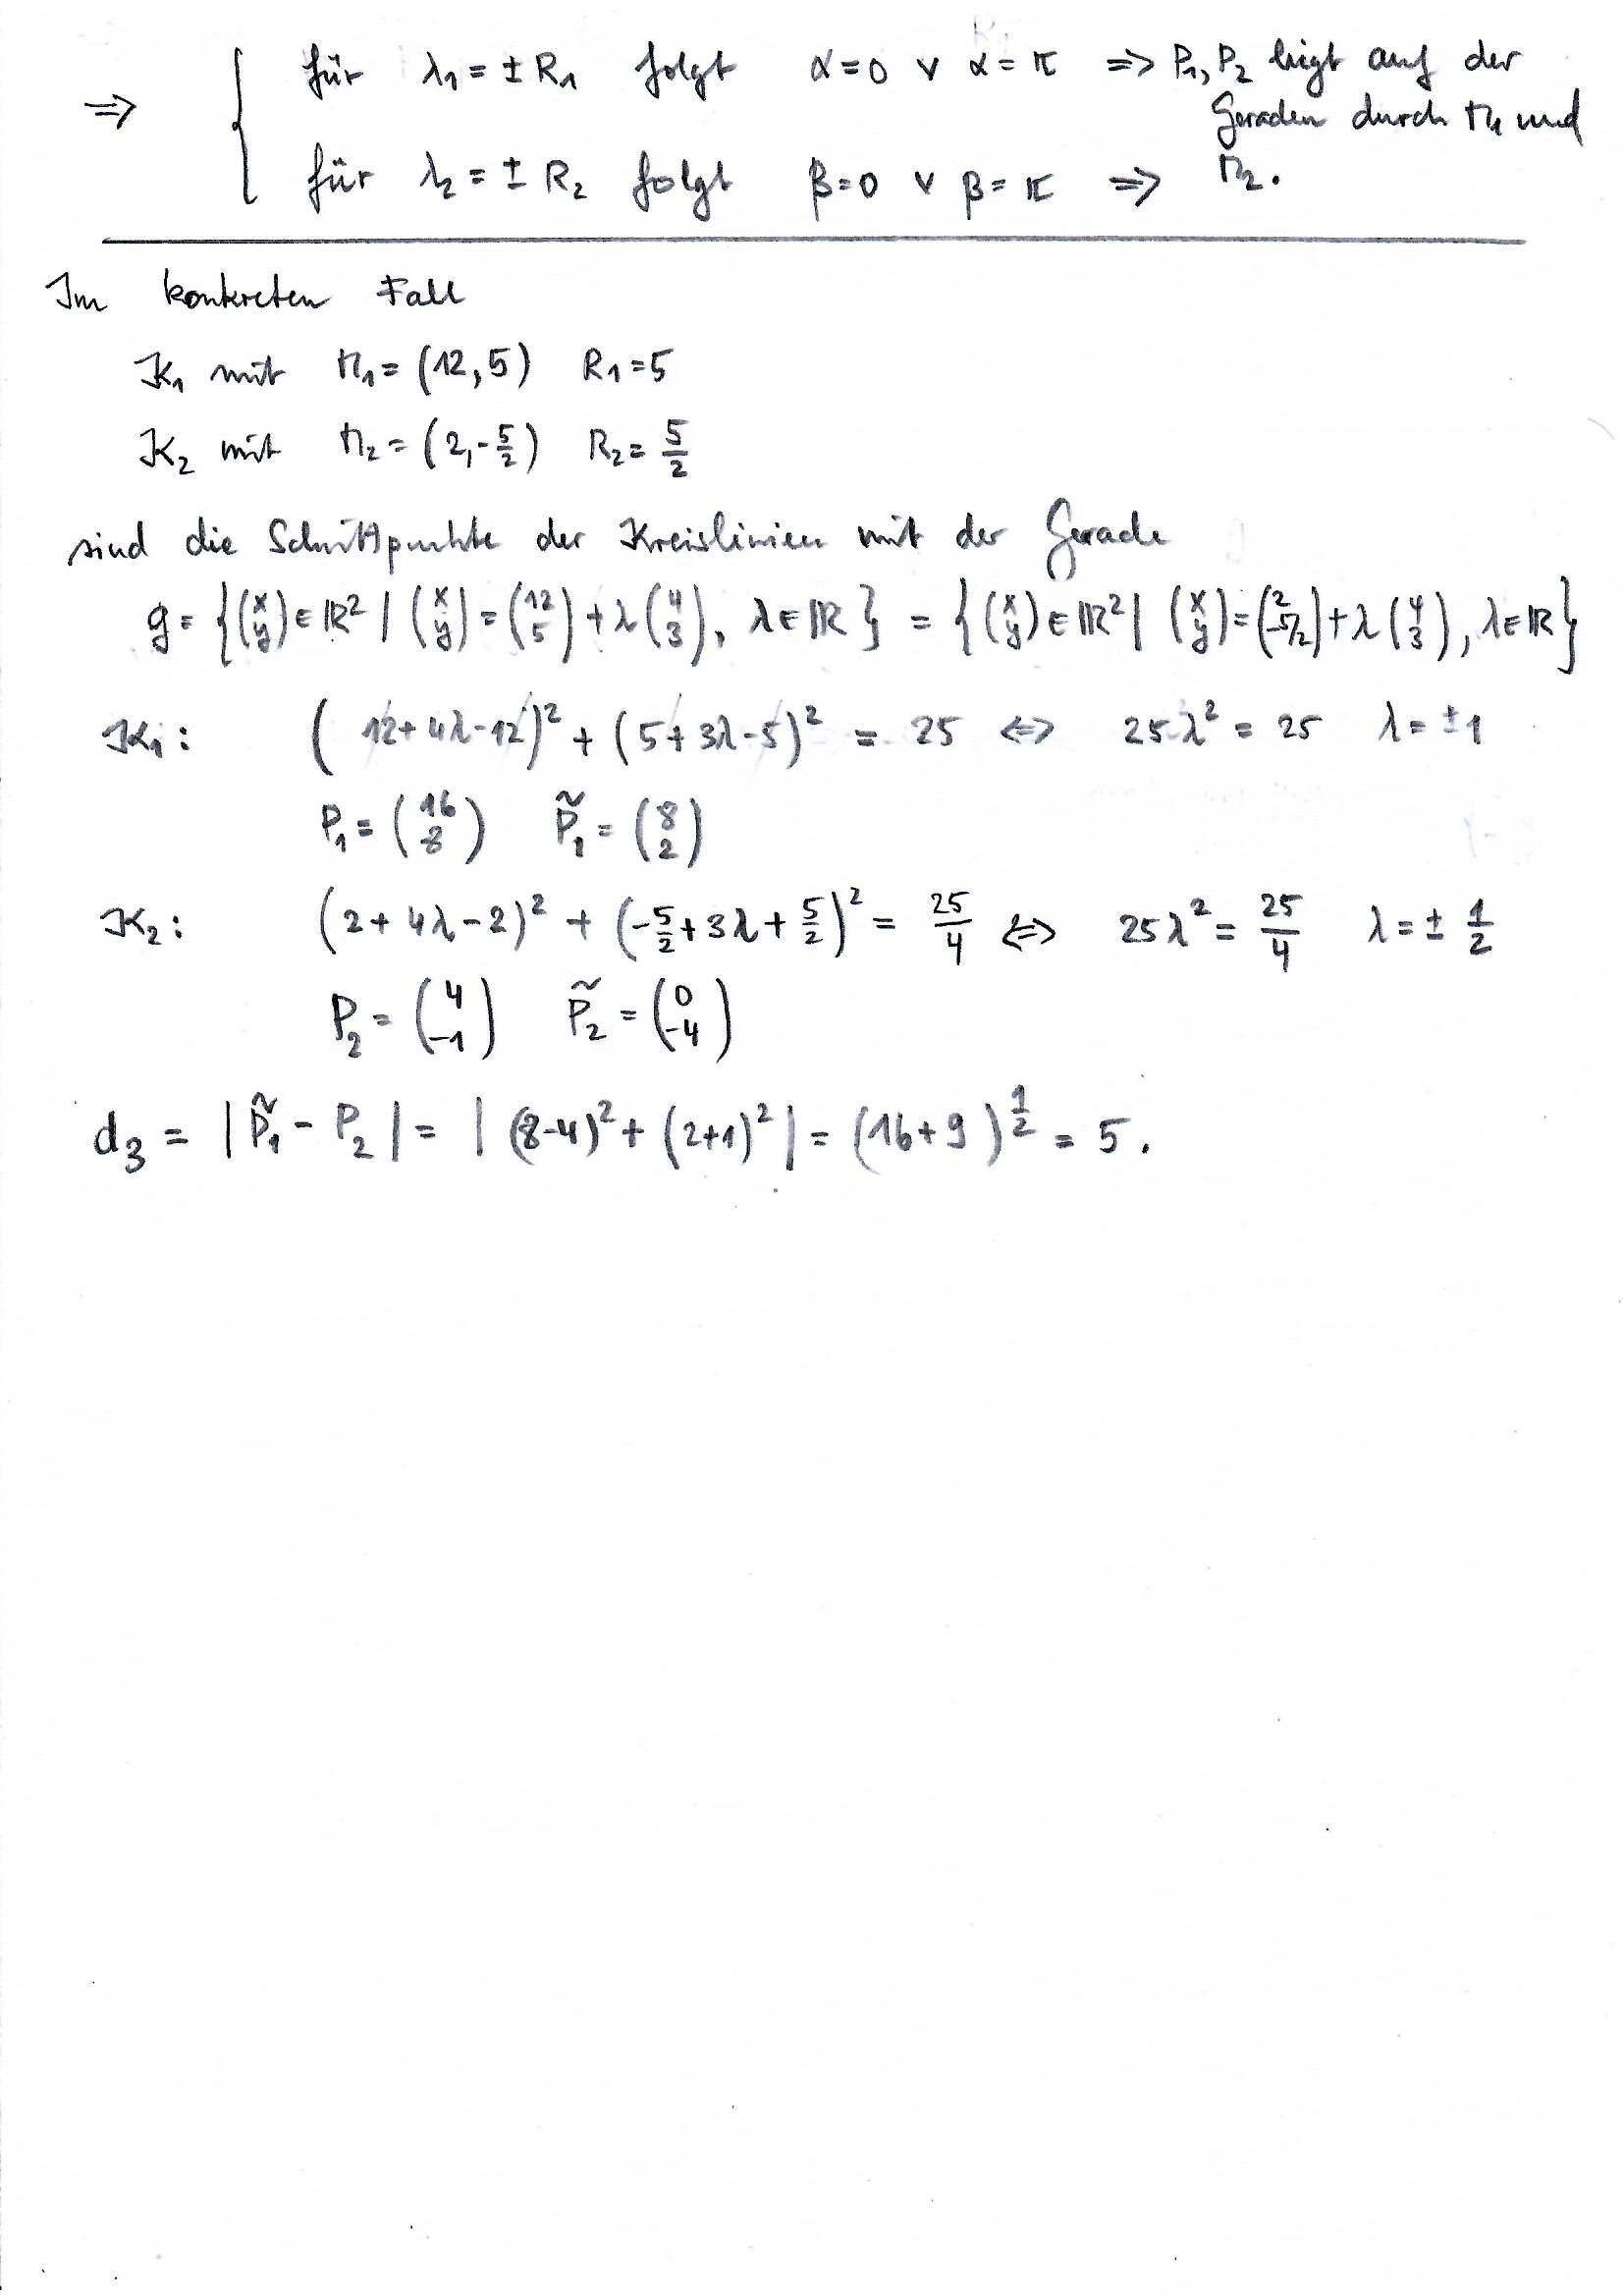 ⇒ { für λ₁ = ± R₁ folgt α=0 ∨ α=π ⇒ P₁, P₂ liegt auf der
Geraden durch M₁ und
für λ₂ = ± R₂ folgt β=0 ∨ β=π ⇒ M₂.
Im konkreten Fall
K₁ mit M₁ = (12, 5) R₁ = 5
K₂ mit M₂ = (2, -5/2) R₂ = 5/2
sind die Schnittpunkte der Kreislinien mit der Gerade
g = { (x y) ∈ ℝ² | (x y) = (12 5) + λ (4 3), λ ∈ ℝ } = { (x y) ∈ ℝ² | (x y) = (2 -5/2) + λ (4 3), λ ∈ ℝ }
K₁: (12+4λ-12)² + (5+3λ-5)² = 25 ⇔ 25λ² = 25 λ = ±1
P₁ = (16 8) P̃₁ = (8 2)
K₂: (2+4λ-2)² + (-5/2+3λ+5/2)² = 25/4 ⇔ 25λ² = 25/4 λ = ± 1/2
P₂ = (4 -1) P̃₂ = (0 -4)
d₃ = |P̃₁ - P₂| = | (8-4)² + (2+1)² | = (16+9)^(1/2) = 5.